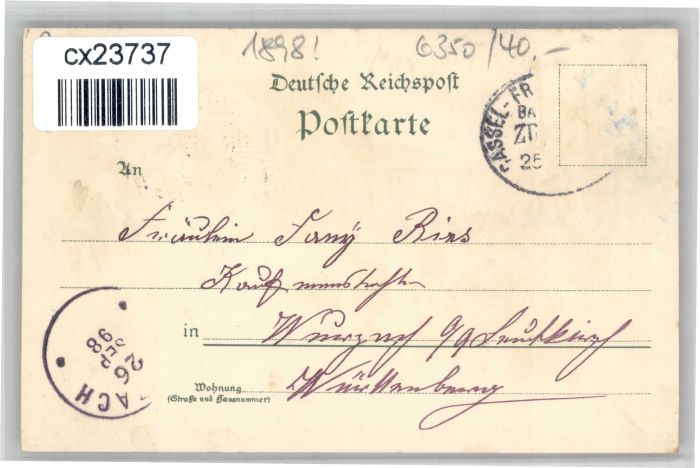 cx23737
1898!
6350/40,-
Deutsche Reichspost
Postkarte
CASSEL-FR
BA
ZU
25
An
Fräulein Fany Ries
Kaufmannstochter
in Wurzach O/A Leutkirch
Württemberg
Wohnung
(Straße und Hausnummer)
ACH
26
SEP
98